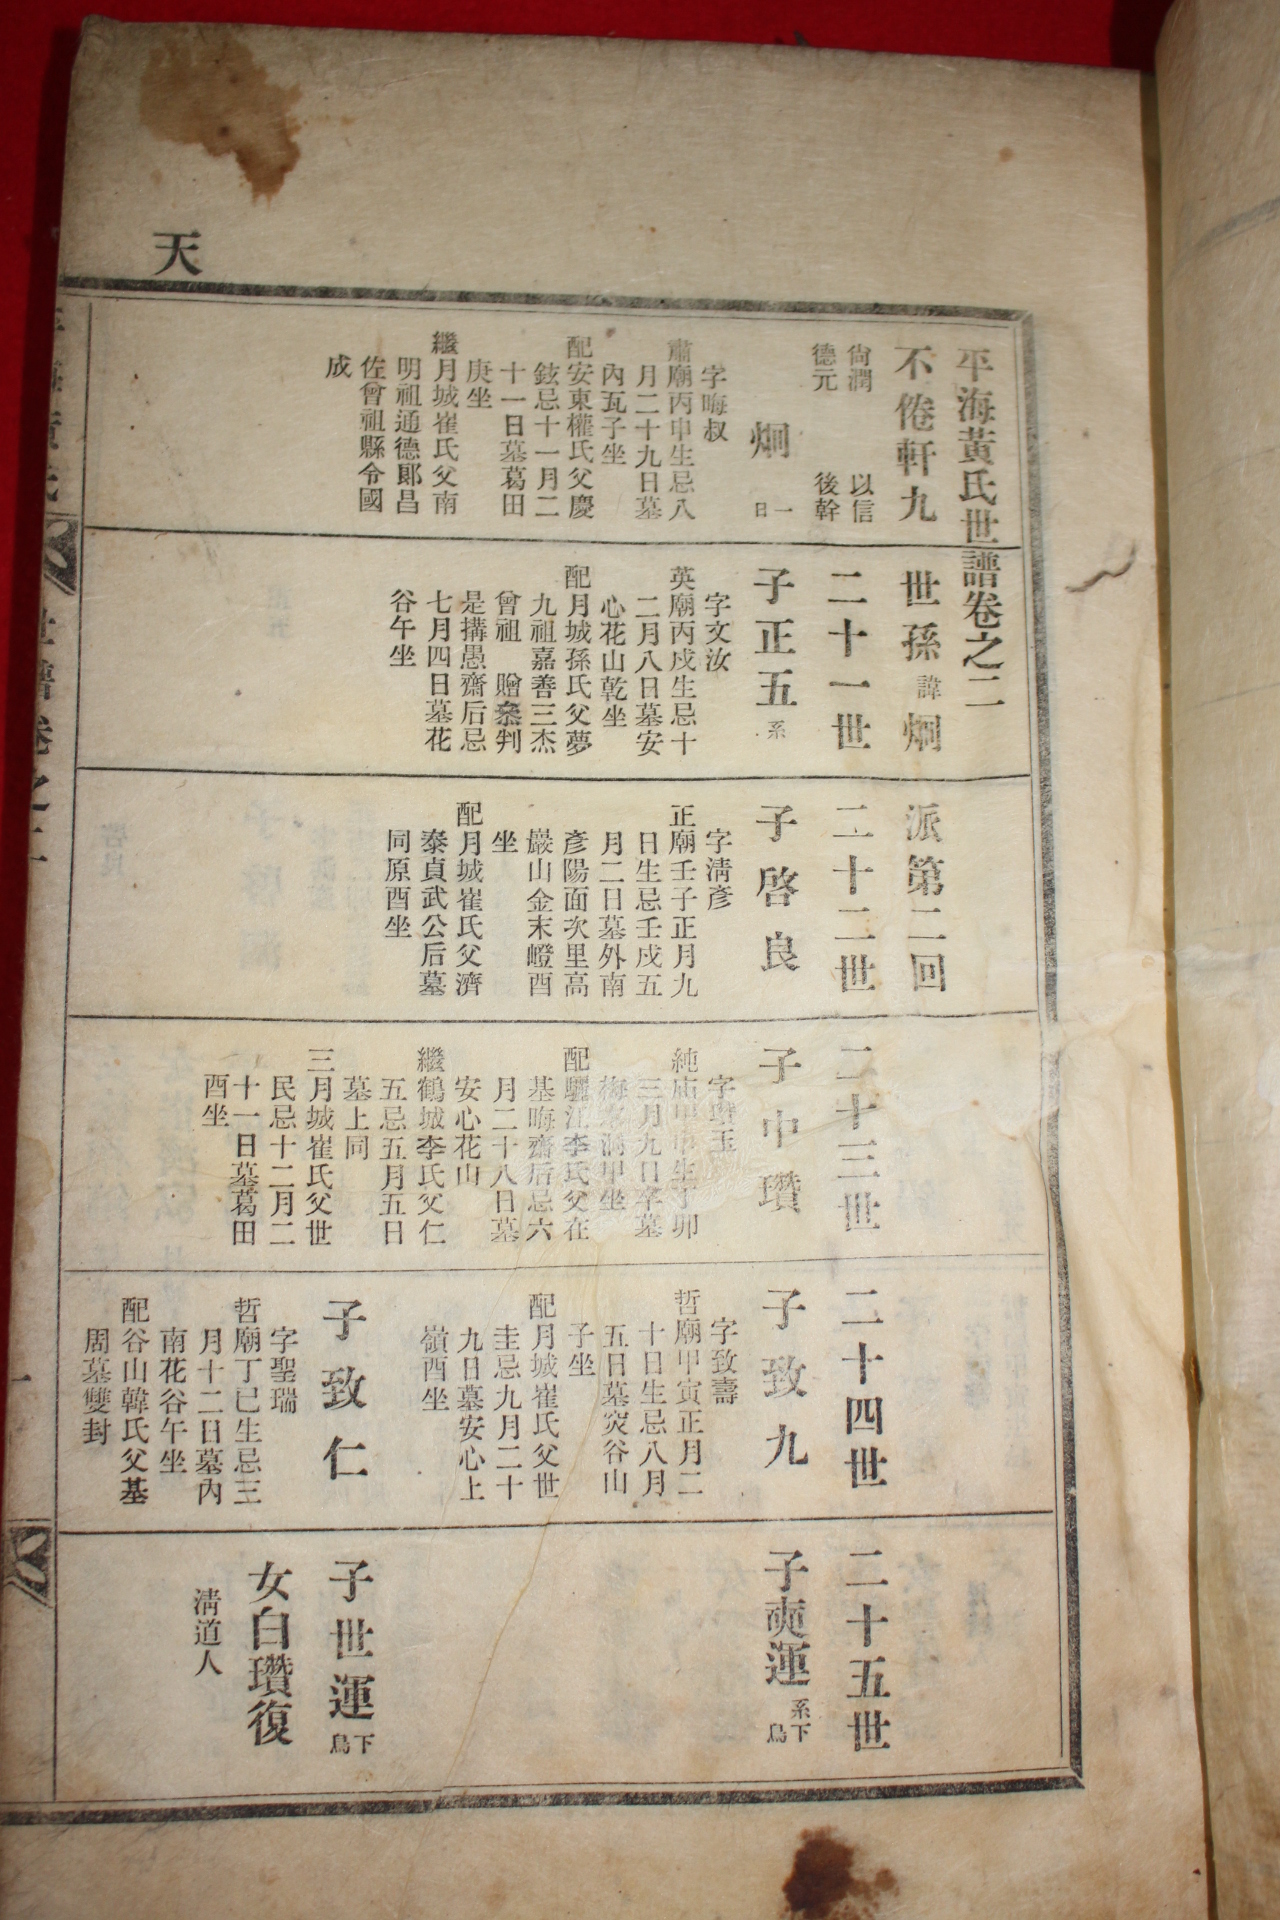 天
平海黃氏世譜卷之二
不倦軒九世孫諱炯派第二回
尙潤 以信
德元 後幹
炯 一日
字晦叔
肅廟丙申生忌八
月二十九日墓
內瓦子坐
配安東權氏父慶
鉉忌十一月二
十一日墓葛田
庚坐
繼月城崔氏父南
明祖通德郞昌
佐曾祖縣令國
成
二十一世
子正五 系
字文汝
英廟丙戍生忌十
二月八日墓安
心花山乾坐
配月城孫氏父夢
九祖嘉善三杰
曾祖 贈叅判
是搆愚齋后忌
七月四日墓花
谷午坐
二十二世
子啓良
字淸彥
正廟壬子正月九
日生忌壬戍五
月二日墓外南
彥陽面次里高
巖山金末嶝酉
坐
配月城崔氏父濟
泰貞武公后墓
同原酉坐
二十三世
子中瓚
字瓚玉
純庙甲申生丁卯
三月九日卒墓
洞甲坐
配驪江李氏父在
基晦齋后忌六
月二十八日墓
安心花山
繼鶴城李氏父仁
五忌五月五日
墓上同
三月城崔氏父世
民忌十二月二
十一日墓葛田
酉坐
二十四世
子致九
字致壽
哲廟甲寅正月二
十日生忌八月
五日墓突谷山
子坐
配月城崔氏父世
圭忌九月二十
九日墓安心上
嶺酉坐
子致仁
字聖瑞
哲廟丁巳生忌三
月十二日墓內
南花谷午坐
配谷山韓氏父基
周墓雙封
二十五世
子奭運 系下鳥
子世運 下鳥
女白瓚復
淸道人
世譜卷之二
一